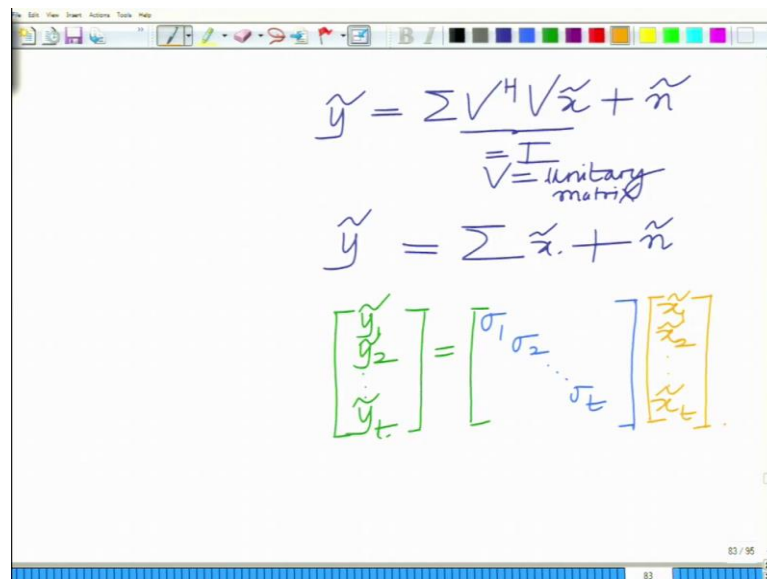 File Edit View Insert Actions Tools Help
B I
ỹ = Σ V^H V x̃ + ñ
= I
V = unitary
matrix
ỹ = Σ x̃. + ñ
[ỹ1 ỹ2 : ỹt.] = [σ1 σ2 ⋱ σt] [x̃1 x̃2 : x̃t].
83 / 95
83